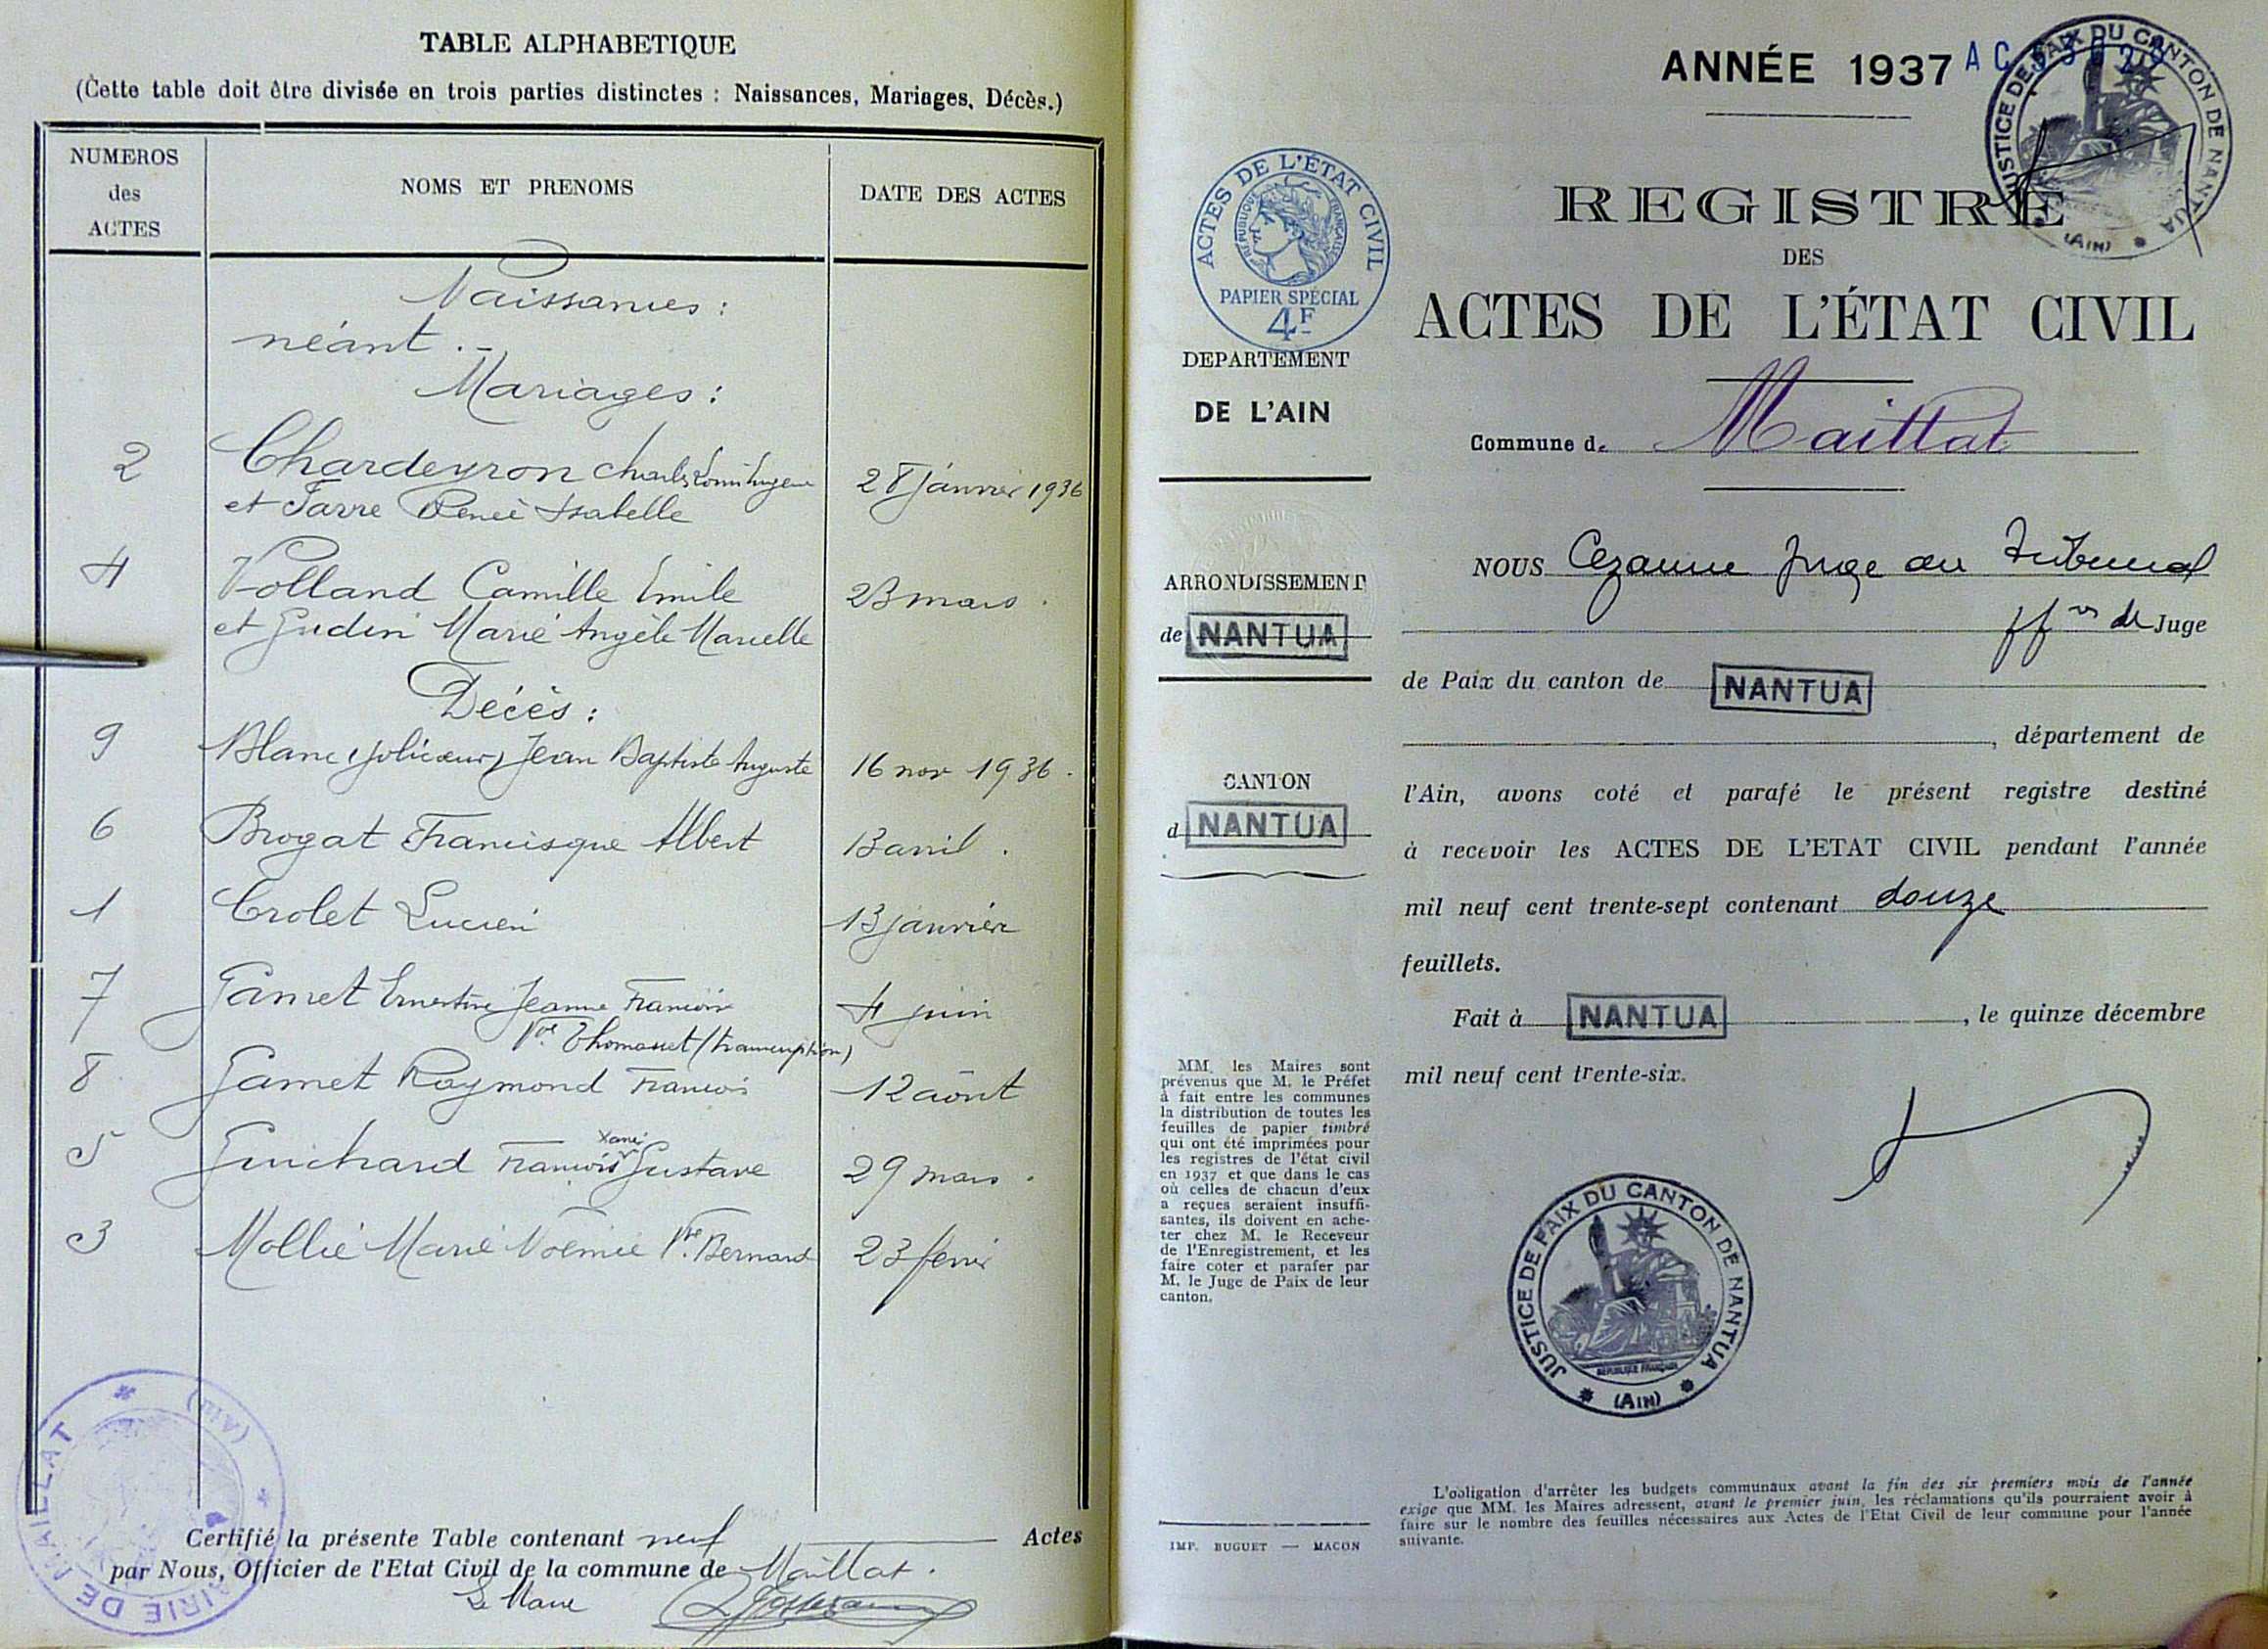 TABLE ALPHABETIQUE
(Cette table doit être divisée en trois parties distinctes : Naissances, Mariages, Décès.)
NUMEROS
des
ACTES
NOMS ET PRENOMS
DATE DES ACTES
Naissances :
néant .-
Mariages :
2 Chardeyron Charles Louis Eugène 28 janvier 1936
et Favre Renée Isabelle
4 Volland Camille Emile 23 mars .
et Gudin Marie Angèle Marcelle
Décès :
9 Blanc (Jolicœur) Jean Baptiste Auguste 16 nov 1936 .
6 Brogat Francisque Albert 13 avril .
1 Crolet Lucien 13 janvier
7 Gamet Ernestine Jeanne 4 juin
Vve Thomasset (transcription)
8 Gamet Raymond François 12 août
Xavier
5 Guichard François Gustave 29 mars .
3 Mollié Marie Noémie Vve Bernard 23 février
MAIRIE DE MAILLAT
(AIN)
Certifié la présente Table contenant neuf Actes
par Nous, Officier de l'Etat Civil de la commune de Maillat .
Le Maire
ANNÉE 1937
JUSTICE DE PAIX DU CANTON DE NANTUA
(AIN)
ACTES DE L'ÉTAT CIVIL
RÉPUBLIQUE FRANÇAISE
PAPIER SPÉCIAL
4F
DEPARTEMENT
DE L'AIN
ARRONDISSEMENT
de NANTUA
CANTON
d NANTUA
MM. les Maires sont
prévenus que M. le Préfet
à fait entre les communes
la distribution de toutes les
feuilles de papier timbré
qui ont été imprimées pour
les registres de l'état civil
en 1937 et que dans le cas
où celles de chacun d'eux
a reçues seraient insuffi-
santes, ils doivent en ache-
ter chez M. le Receveur
de l'Enregistrement, et les
faire coter et parafer par
M. le Juge de Paix de leur
canton.
IMP. BUGUET — MACON
REGISTRE
DES
ACTES DE L'ÉTAT CIVIL
Commune de Maillat
NOUS Cezanne Juge au Tribunal
ffons de Juge
de Paix du canton de NANTUA
, département de
l'Ain, avons coté et parafé le présent registre destiné
à recevoir les ACTES DE L'ETAT CIVIL pendant l'année
mil neuf cent trente-sept contenant douze
feuillets.
Fait à NANTUA , le quinze décembre
mil neuf cent trente-six.
JUSTICE DE PAIX DU CANTON DE NANTUA
RÉPUBLIQUE FRANÇAISE
(AIN)
L'obligation d'arrêter les budgets communaux avant la fin des six premiers mois de l'année
exige que MM. les Maires adressent, avant le premier juin, les réclamations qu'ils pourraient avoir à
faire sur le nombre des feuilles nécessaires aux Actes de l'Etat Civil de leur commune pour l'année
suivante.